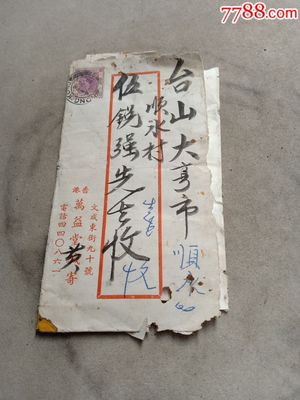 7788.com
台山大亨市
順水村
伍銳强先生收
香港
文咸東街九十號
萬益堂
寄
電話四四〇八六一